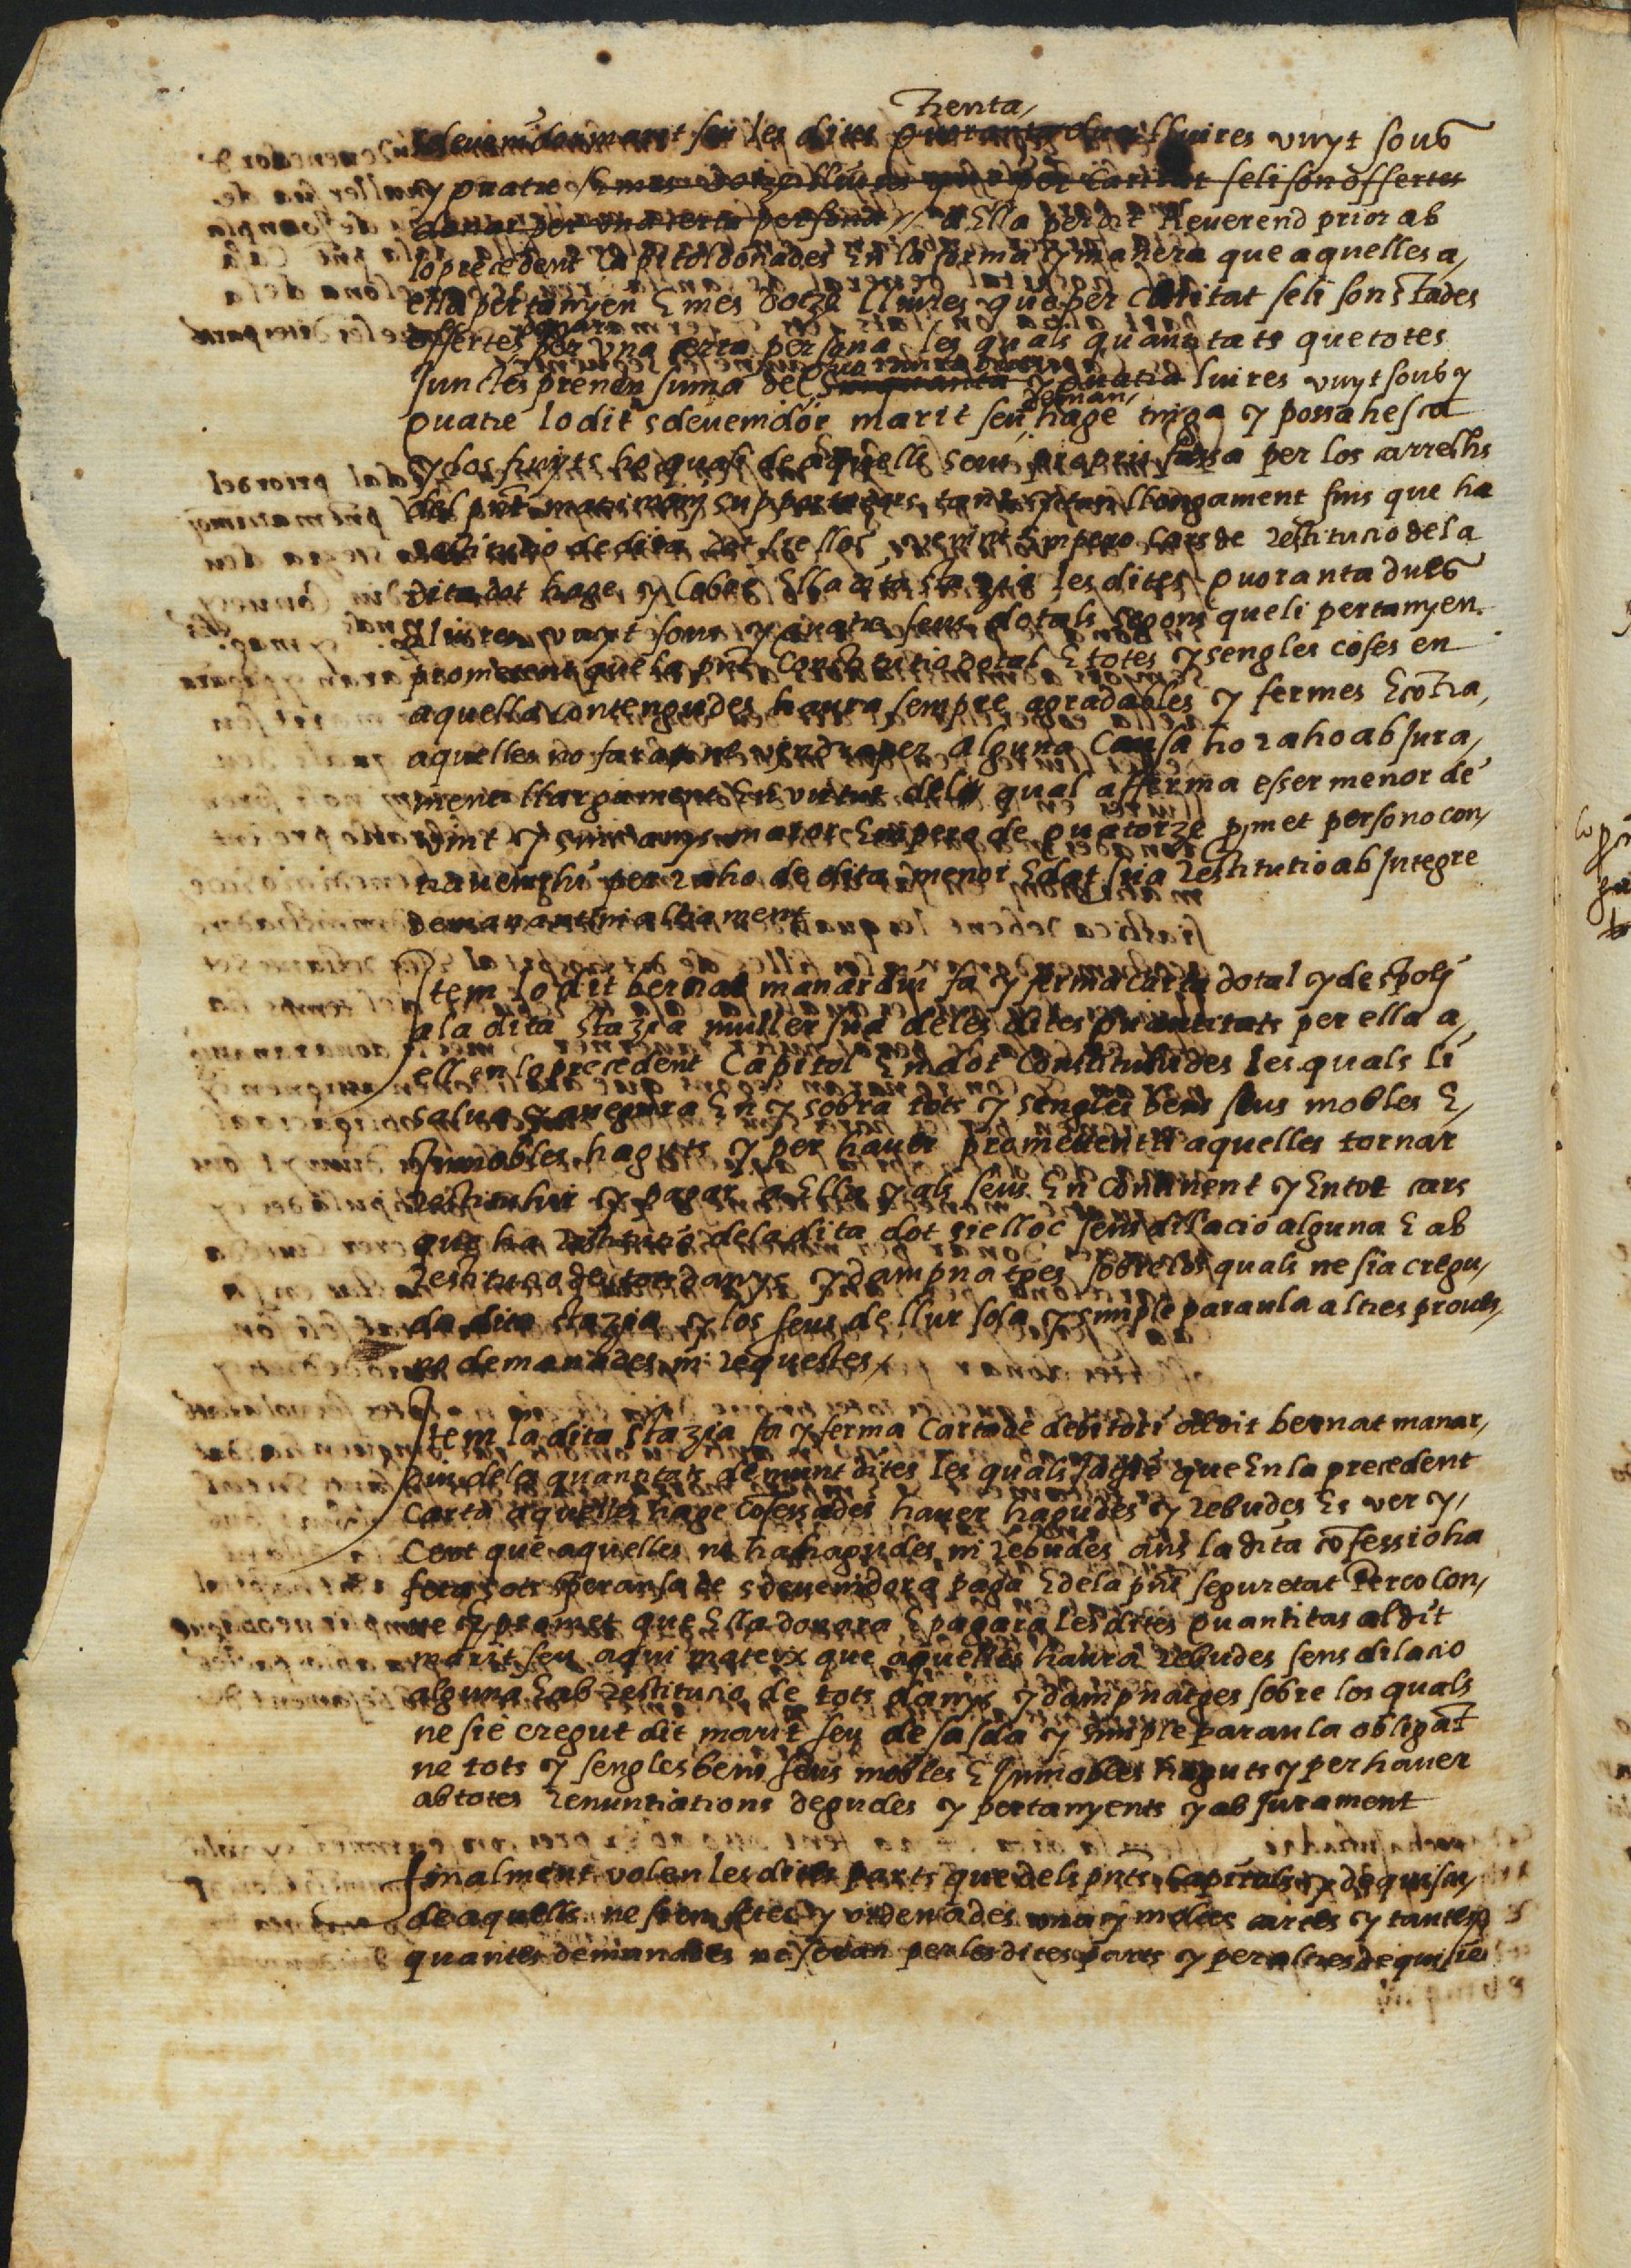 trenta
sdevenidor marit seu les dites quoranta dues lliures vuyt sous
y quatre E mes dotze lliures que per caritat seli son offertes
donar per una certa persona // a Ella per dit Reverend prior ab
lo precedent capitol donades En la forma y manera que aquelles a,
ella pertanyen E mes dotze lliures que per caritat seli son stades
offertes donar per una certa persona les quals quantitats que totes
junctes prenen suma de quoranta dues sinquanta y quatre lliures vuyt sous y
quatre lo dit sdevenidor marit seu deman, hage tinga y possahesca
y los fruyts ho quals de aquells sous propris fassa per los carrechs
del pnt matrimonj supportadors tant y tan llongament fins que ha
restitucio de dita dot sie lloc, venint Empero cars de restitucio dela
dita dot hage y cobre Ella dita stazia les dites quoranta dues
lliures vuyt sous y quatre seus dotals segons que li pertanyen
prometent que la pnt Constitucio dotal E totes y sengles coses en
aquella contengudes haura sempre agradables y fermes E cotra,
aquelles no fara ne vendra per alguna Causa ho raho ab jura,
ment llargament En virtut dela qual afferma esser menor de
vint y sinc anys maior Empero de quatorze pmet per so no con,
travenirhi per raho de dita menor Edat sua restitutio ab integre
demanant ni altrament
Item lo dit bernat manardui fa y ferma carta dotal y de spolj
a la dita stazia muller sua de les dites quantitats per ella a,
ell en lo precedent Capitol En dot Constituhides les quals li
salva y assegura En y sobra tots y sengles bens seus mobles E,
Inmobles haguts y per haver prometentli aquelles tornar
restituhir y pagar a Ella y als seus En continent y En tot cars
que ha restitucio de la dita dot sie lloc sens dilacio alguna E ab
restitucio de tots danys y dampnatges sobre los quals ne sia cregu,
da dita stazia y los seus de llur sola y simple paraula altres proves,
no demanades ni requestes,
Item la dita stazia fa y ferma Carta de debitori al dit bernat manar,
dui dela quantitats demunt dites les quals jatsie que En la precedent
carta aquelles hage cofessades haver hagudes y rebudes Es ver y,
Cert que aquelles no ha hagudes ni rebudes ans la dita cofessio ha
feta sots speransa de sdevenidora paga E dela pnt seguretat Perco con,
ve y promet que Ella donara E pagara les dites quantitas al dit
marit seu aqui mateix que aquelles haura rebudes sens dilacio
alguna E ab restitucio de tots danys y dampnatges sobre los quals
ne sie cregut dit marit seu de sa sola y simple paraula obligat
ne tots y sengles bens seus mobles E Inmobles haguts y per haver
ab totes renuntiations degudes y pertanyents y ab jurament
finalment volen les dites parts que dels pnts capitols y de quisu,
de aquells ne sien fetes y ordenades una y moltes cartes y tantes
quantes demanades ne seran per les dites parts y per altres de qui sies